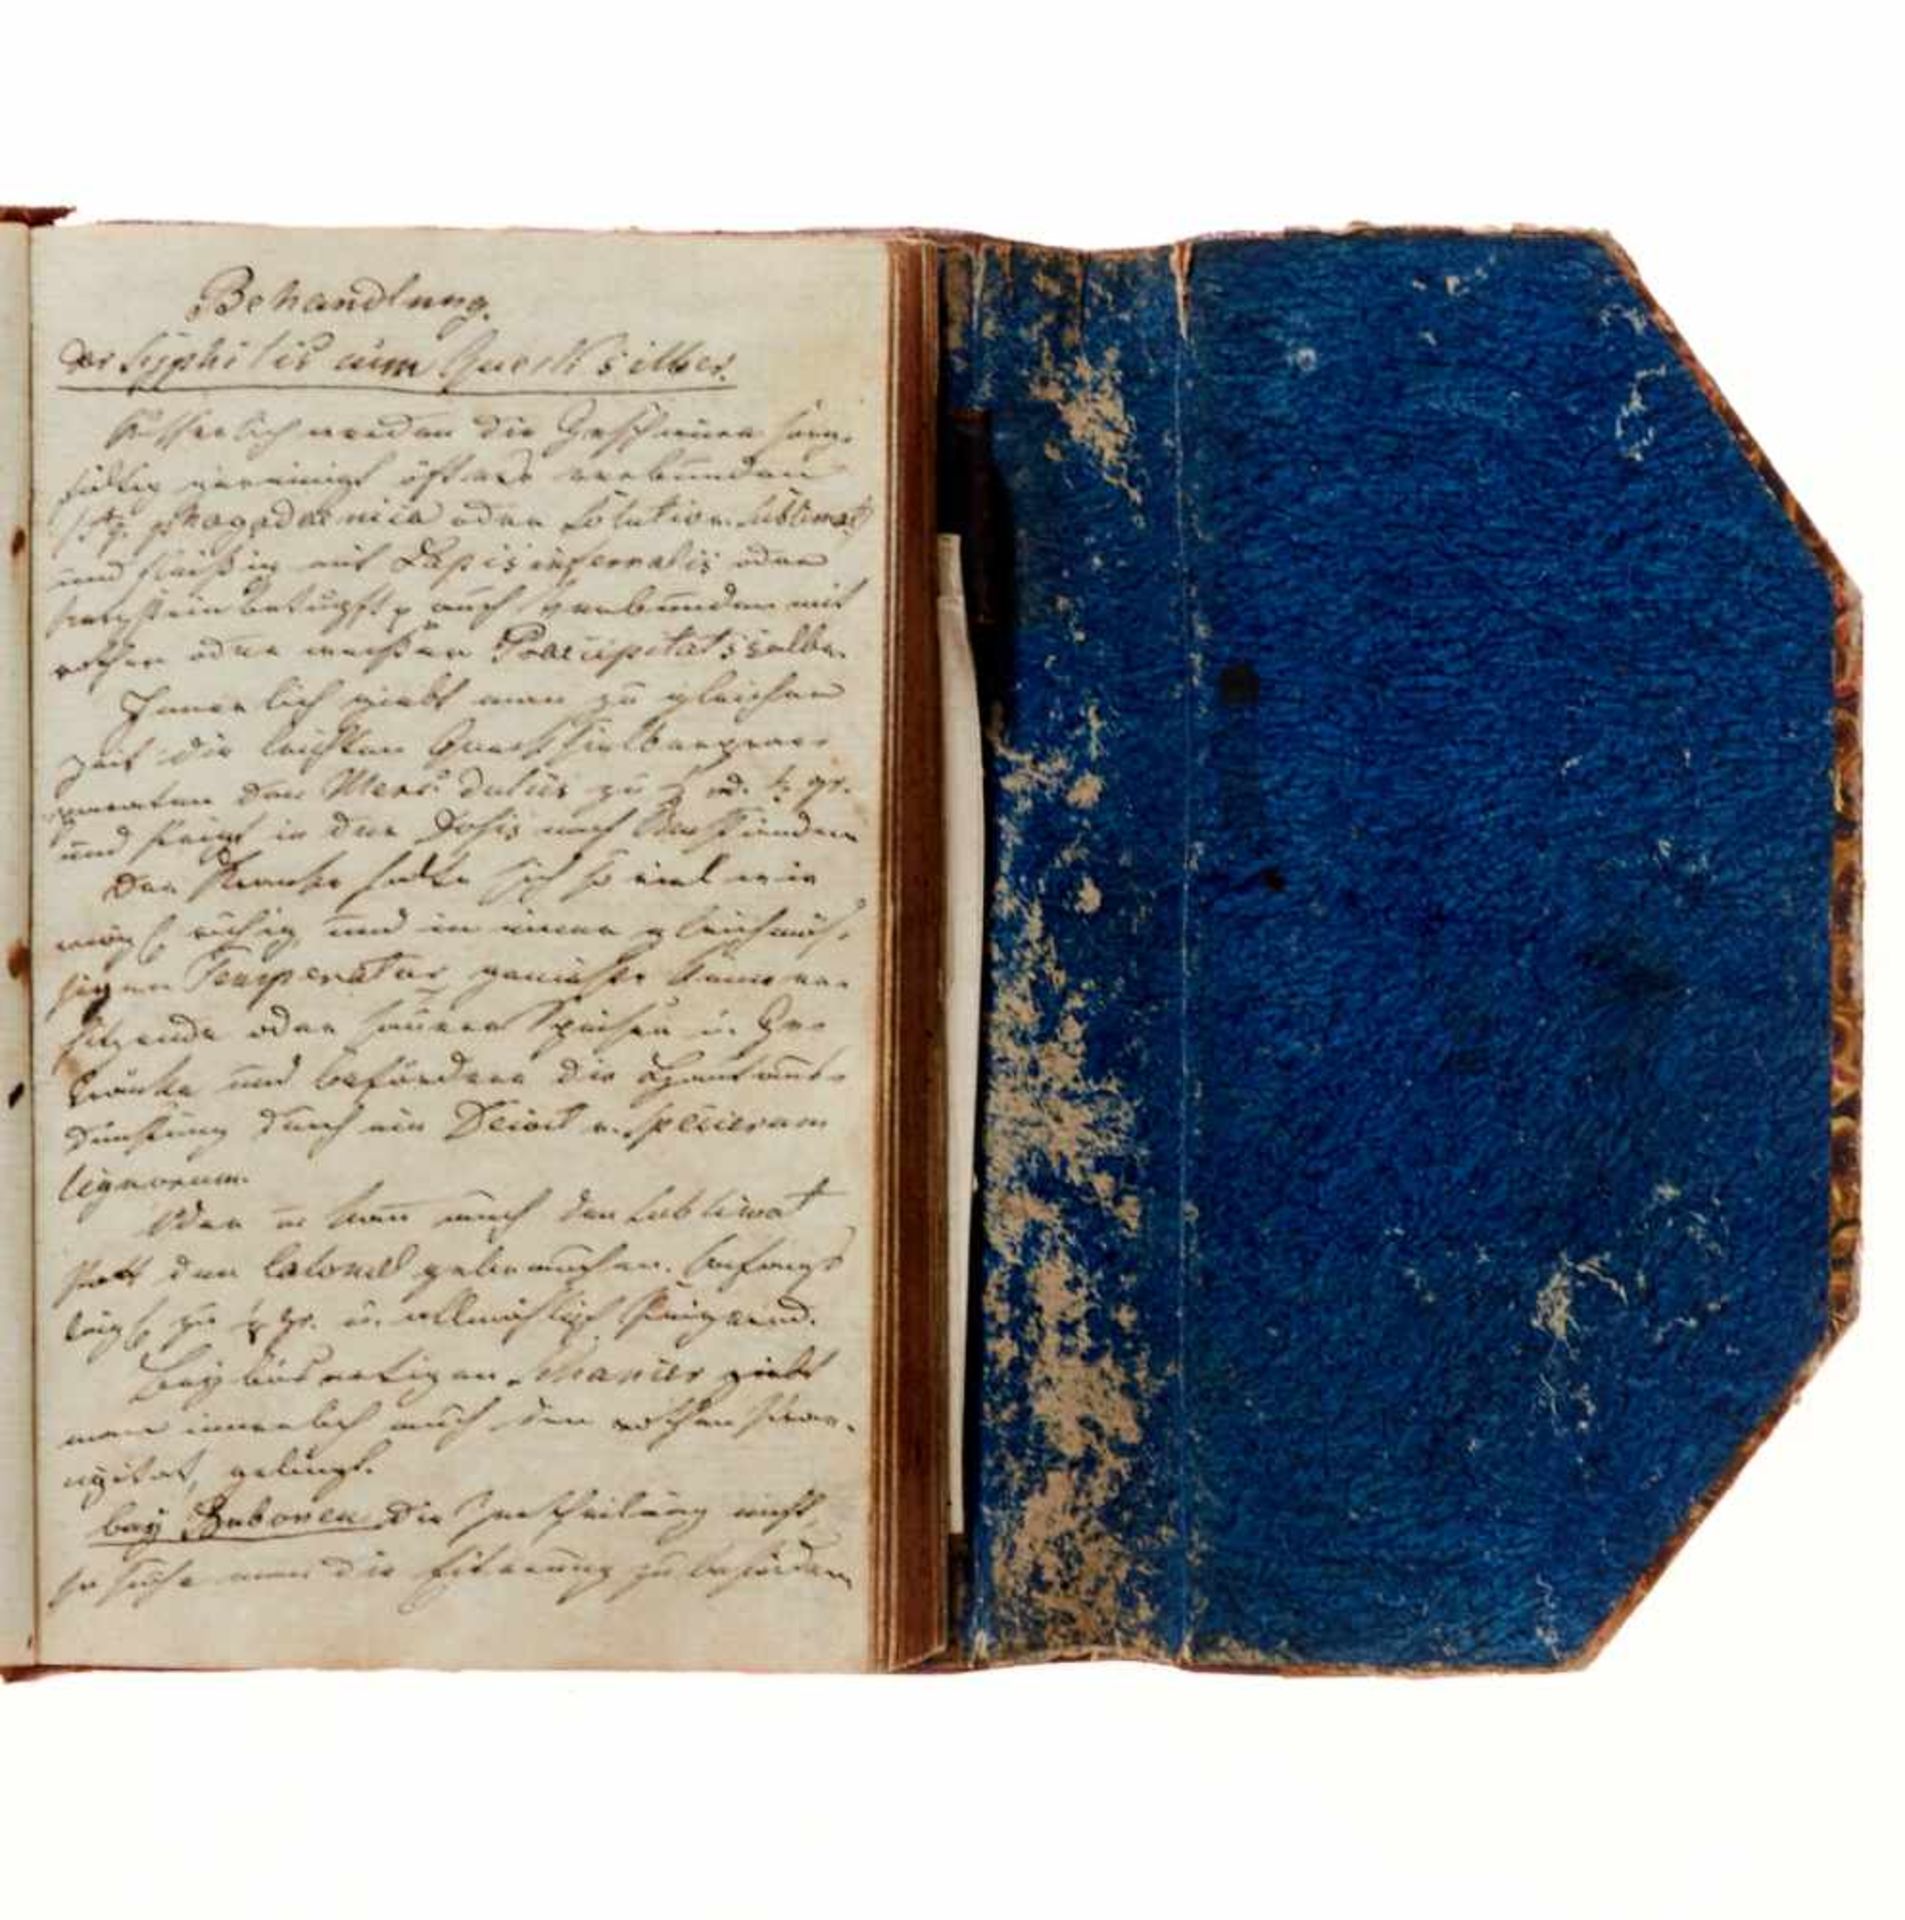 Behandlung.
der Syphilis cum Quecksilber.
Äusserlich werden die Geschwüre sorg-
fältig gereinigt öfters verbunden
Aq. phagadaenica oder Solution. Sublimat
und fleißig mit Lapis infernalis oder
betupft, auch verbunden mit
rothen oder weißen Praecipitatssalbe.
Innerlich giebt man zu gleicher
Zeit die leichten Quecksilberprae-
paraten den Merc. dulcis zu od. gr.
und steigt in der Dosis nach Umständen
Der Kranke halte sich so viel wie
mögl. ruhig und in einer gleichmäs-
sigen Temperatur, genieße keine er-
hitzende oder sauere Speisen u. Ge-
tränke und befördere die Hautaus-
dünstung durch ein Decoct v. specierum
lignorum.
Oder kann auch den Sublimat
statt den Calomel gebrauchen. Anfangs
tägl. zu gr. u. allmählig steigend.
Bey bösartigen Schancer giebt
man innerlich auch den rothen Präe-
cipitat, gelingt
bey Bubonen die Zertheilung nicht,
so suche man die Eiterung zu befördern